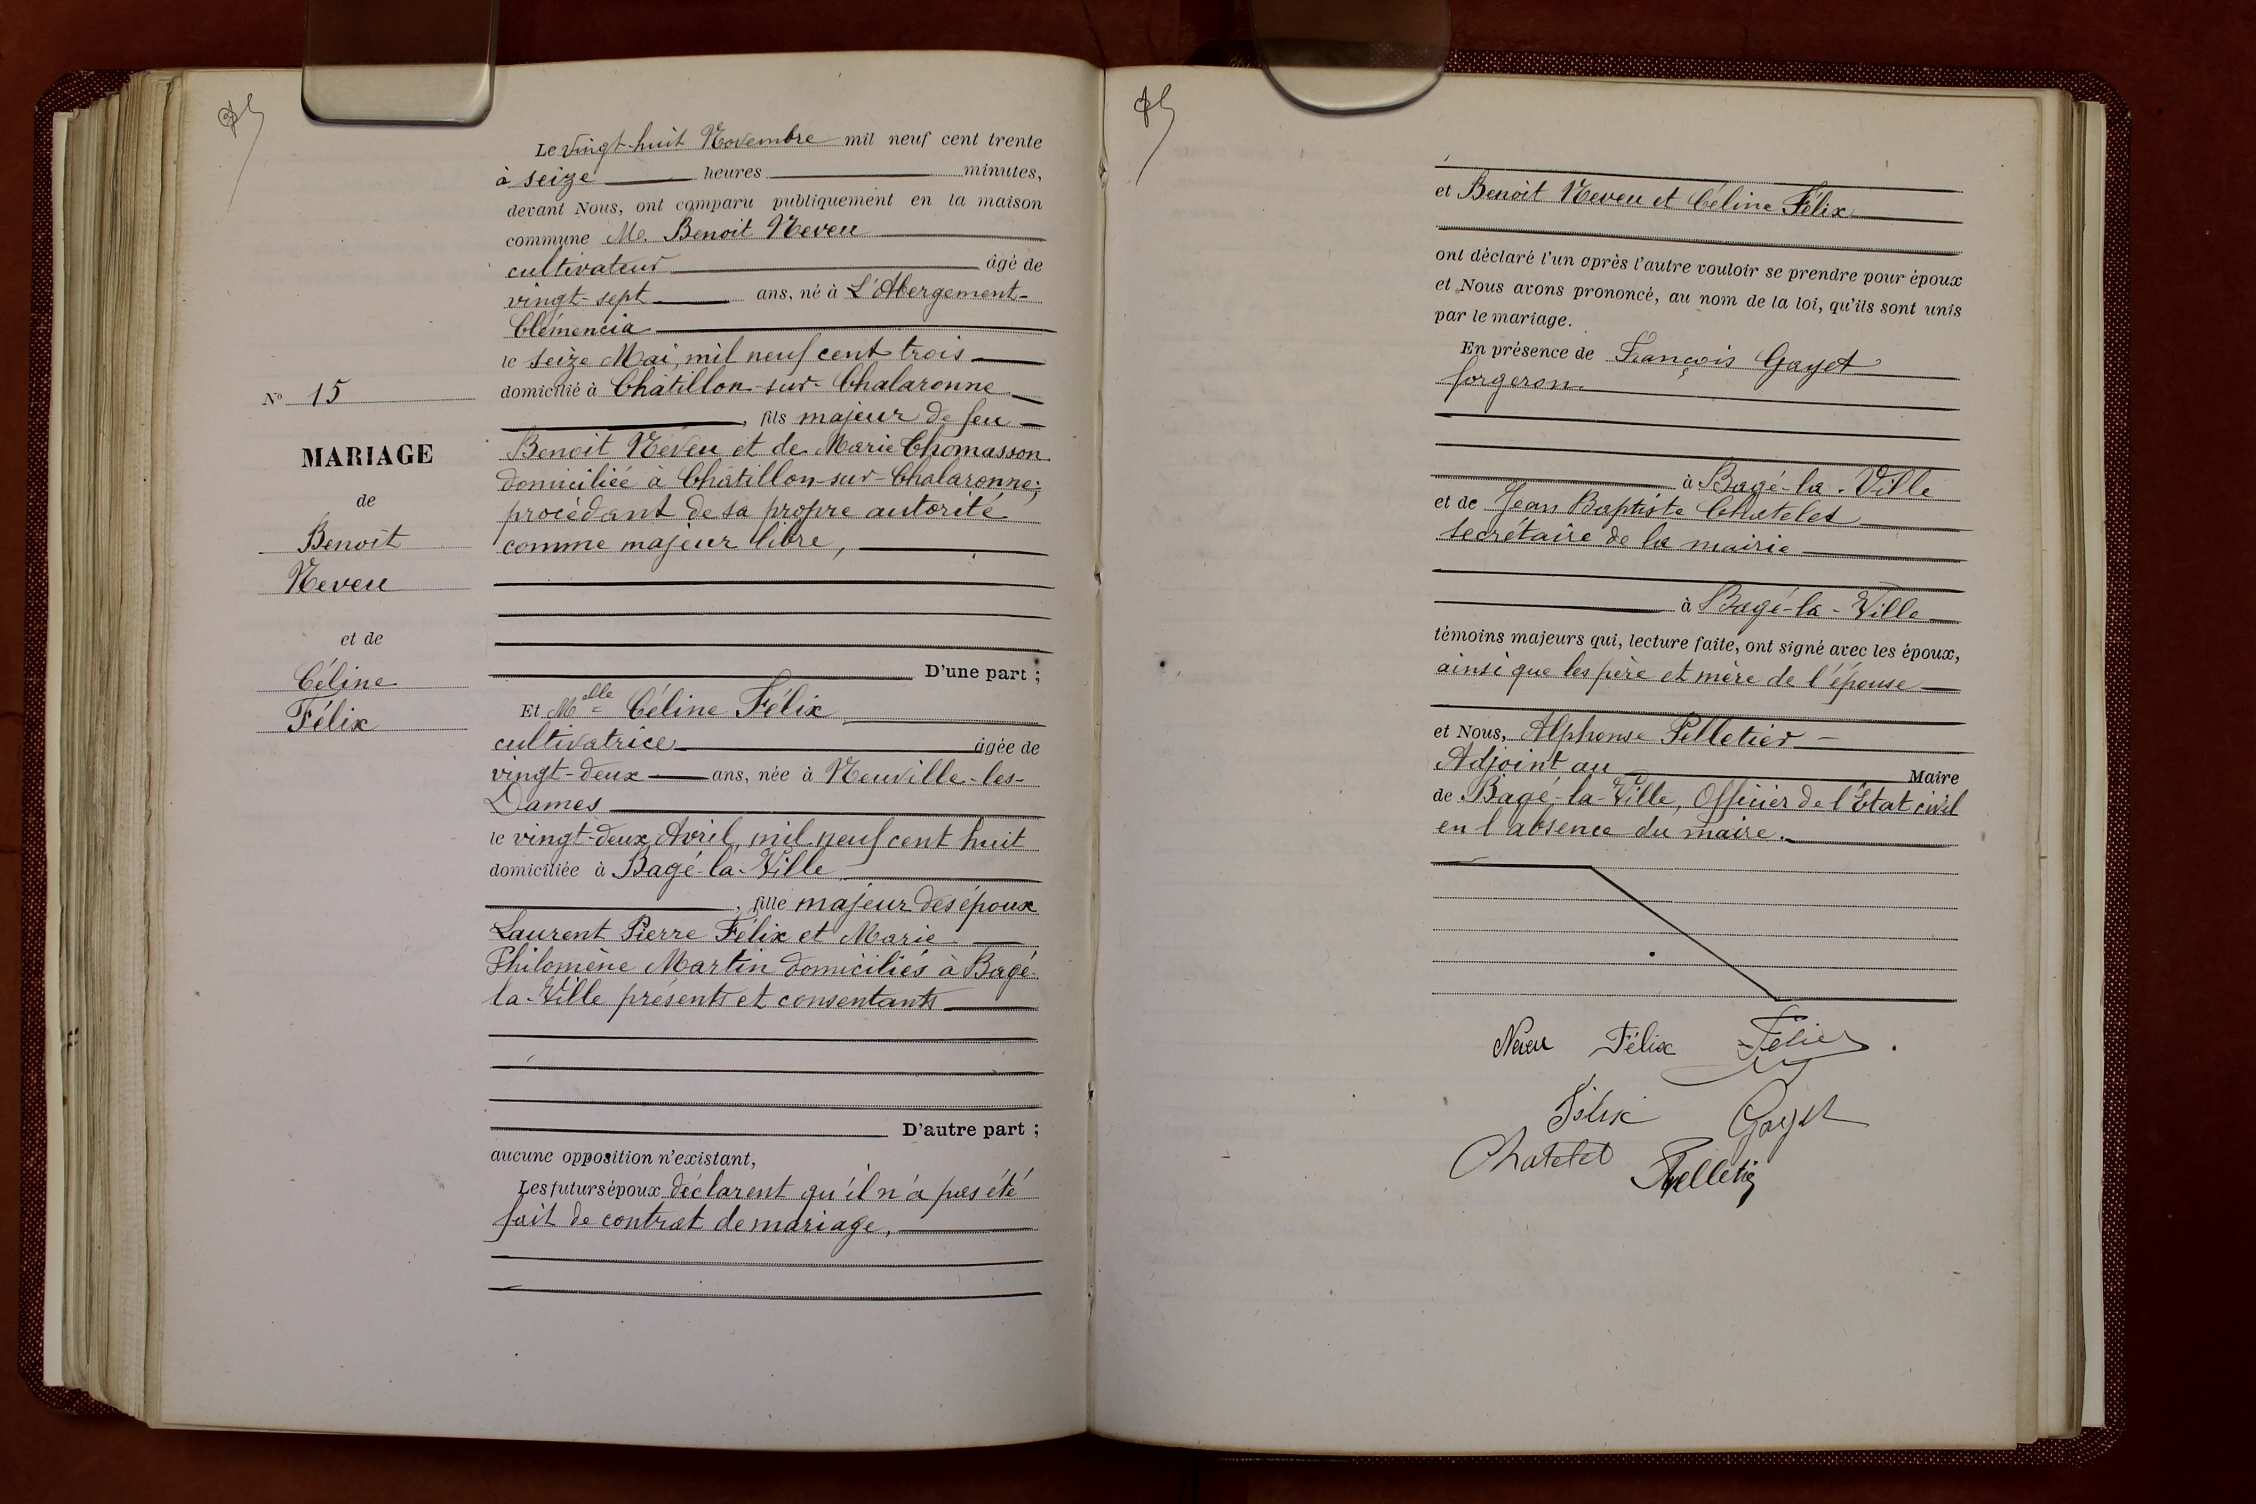 N° 15
MARIAGE
de
Benoit
Neveu
et de
Céline
Félix
Le vingt-huit Novembre mil neuf cent trente
à seize heures minutes,
devant Nous, ont comparu publiquement en la maison
commune M. Benoit Neveu
cultivateur âgé de
vingt-sept ans, né à L'Abergement-
Clémencia
le seize Mai, mil neuf cent trois
domicilié à Châtillon-sur-Chalaronne
, fils majeur de feu
Benoit Neveu et de Marie Thomasson
domiciliée à Châtillon-sur-Chalaronne;
procédant de sa propre autorité
comme majeur libre,
D'une part ;
Et Melle Céline Félix
cultivatrice âgée de
vingt-deux ans, née à Neuville-les-
Dames
le vingt-deux Avril, mil neuf cent huit
domiciliée à Bagé-la-Ville
, fille majeur des époux
Laurent Pierre Félix et Marie
Philomène Martin domiciliés à Bagé-
la-Ville présents et consentants
D'autre part ;
aucune opposition n'existant,
Les futurs époux déclarent qu'il n'a pas été
fait de contrat de mariage,
et Benoit Neveu et Céline Félix
ont déclaré l'un après l'autre vouloir se prendre pour époux
et Nous avons prononcé, au nom de la loi, qu'ils sont unis
par le mariage.
En présence de François Gayet
forgeron
à Bagé-la-Ville
et de Jean Baptiste Chatelet
secrétaire de la mairie
à Bagé-la-Ville
témoins majeurs qui, lecture faite, ont signé avec les époux,
ainsi que les père et mère de l'épouse
et Nous, Alphonse Pelletier
Adjoint au Maire
de Bagé-la-Ville, Officier de l'État civil
en l'absence du maire.
Neveu Félix Félix
Félix Gayet
Chatelet Pelletier